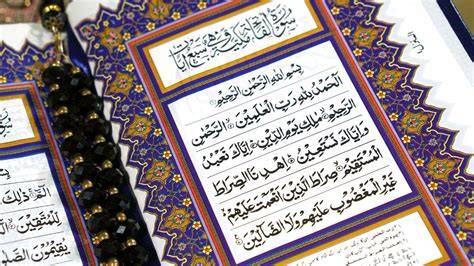 سُورَةُ الْفَاتِحَةِ مَكِّيَّةٌ وَهِيَ سَبْعُ آيَات
بِسْمِ اللهِ الرَّحْمٰنِ الرَّحِيمِ
اَلْحَمْدُ لِلّٰهِ رَبِّ الْعٰلَمِينَ الرَّحْمٰنِ
الرَّحِيمِ مٰلِكِ يَوْمِ الدِّينِ إِيَّاكَ نَعْبُدُ
وَإِيَّاكَ نَسْتَعِينُ اِهْدِنَا الصِّرَاطَ
الْمُسْتَقِيمَ صِرَاطَ الَّذِينَ أَنْعَمْتَ عَلَيْهِمْ
غَيْرِ الْمَغْضُوبِ عَلَيْهِمْ وَلَا الضَّالِّينَ
الٓمٓ ذٰلِكَ
لِلْمُتَّقِينَ
يُقِيمُونَ